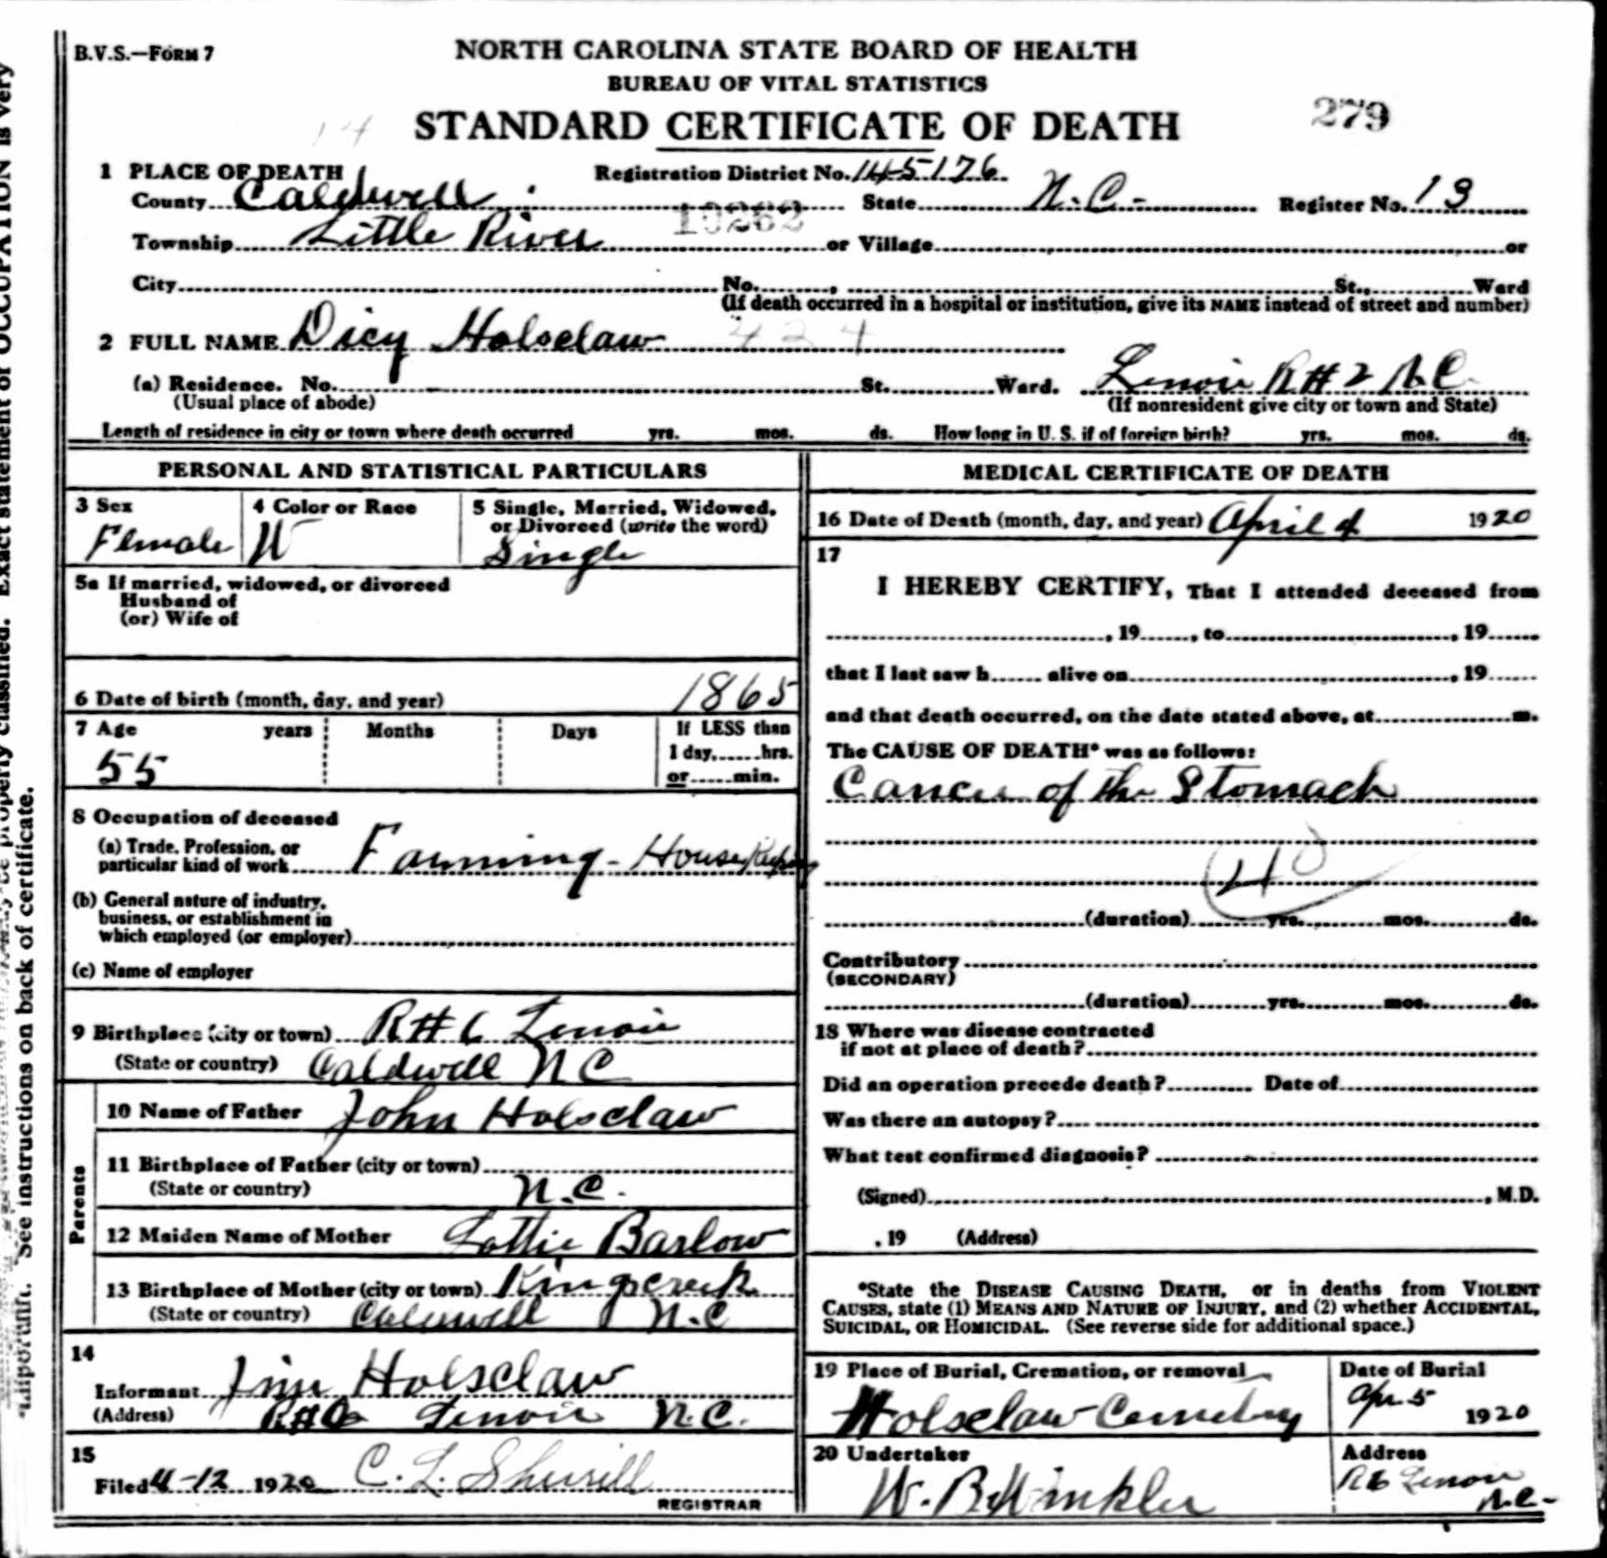 B.V.S.—FORM 7
NORTH CAROLINA STATE BOARD OF HEALTH
BUREAU OF VITAL STATISTICS
STANDARD CERTIFICATE OF DEATH
279
14
1 PLACE OF DEATH
Registration District No. 145176
County Caldwell State N.C- Register No. 13
10262
Township Little River or Village or
City No. , St., Ward
(If death occurred in a hospital or institution, give its NAME instead of street and number)
2 FULL NAME Dicy Holsclaw 424
(a) Residence. No. St. Ward. Lenoir R#2 N.C.
(Usual place of abode) (If nonresident give city or town and State)
Length of residence in city or town where death occurred yrs. mos. ds. How long in U. S. if of foreign birth? yrs. mos. ds.
PERSONAL AND STATISTICAL PARTICULARS
3 Sex
Female
4 Color or Race
W
5 Single, Married, Widowed,
or Divorced (write the word)
Single
5a If married, widowed, or divorced
Husband of
(or) Wife of
6 Date of birth (month, day, and year) 1865
7 Age years Months Days If LESS than
55 1 day, hrs.
or min.
8 Occupation of deceased
(a) Trade, Profession, or
particular kind of work Farming - House Keeping
(b) General nature of industry,
business, or establishment in
which employed (or employer)
(c) Name of employer
9 Birthplace (city or town) R#6 Lenoir
(State or country) Caldwell N C
Parents
10 Name of Father John Holsclaw
11 Birthplace of Father (city or town)
(State or country) N.C.
12 Maiden Name of Mother Lottie Barlow
13 Birthplace of Mother (city or town) Kingscreek
(State or country) Caldwell N.C
14
Informant Jim Holsclaw
(Address) R#6 Lenoir N.C.
15
Filed 4-12 1920 C. L. Sherrill
REGISTRAR
MEDICAL CERTIFICATE OF DEATH
16 Date of Death (month, day, and year) April 4 1920
17
I HEREBY CERTIFY, That I attended deceased from
, 19 , to , 19
that I last saw h alive on , 19
and that death occurred, on the date stated above, at m.
The CAUSE OF DEATH* was as follows:
Cancer of the Stomach
40
(duration) yrs. mos. ds.
Contributory
(SECONDARY)
(duration) yrs. mos. ds.
18 Where was disease contracted
if not at place of death?
Did an operation precede death? Date of
Was there an autopsy?
What test confirmed diagnosis?
(Signed) , M.D.
, 19 (Address)
*State the DISEASE CAUSING DEATH, or in deaths from VIOLENT
CAUSES, state (1) MEANS AND NATURE OF INJURY, and (2) whether ACCIDENTAL,
SUICIDAL, OR HOMICIDAL. (See reverse side for additional space.)
19 Place of Burial, Cremation, or removal
Holsclaw Cemetery
Date of Burial
Apr. 5 1920
20 Undertaker
W. B. Winkler
Address
R6 Lenoir
N.C-
properly classified. Exact statement of OCCUPATION is very
important. See instructions on back of certificate.